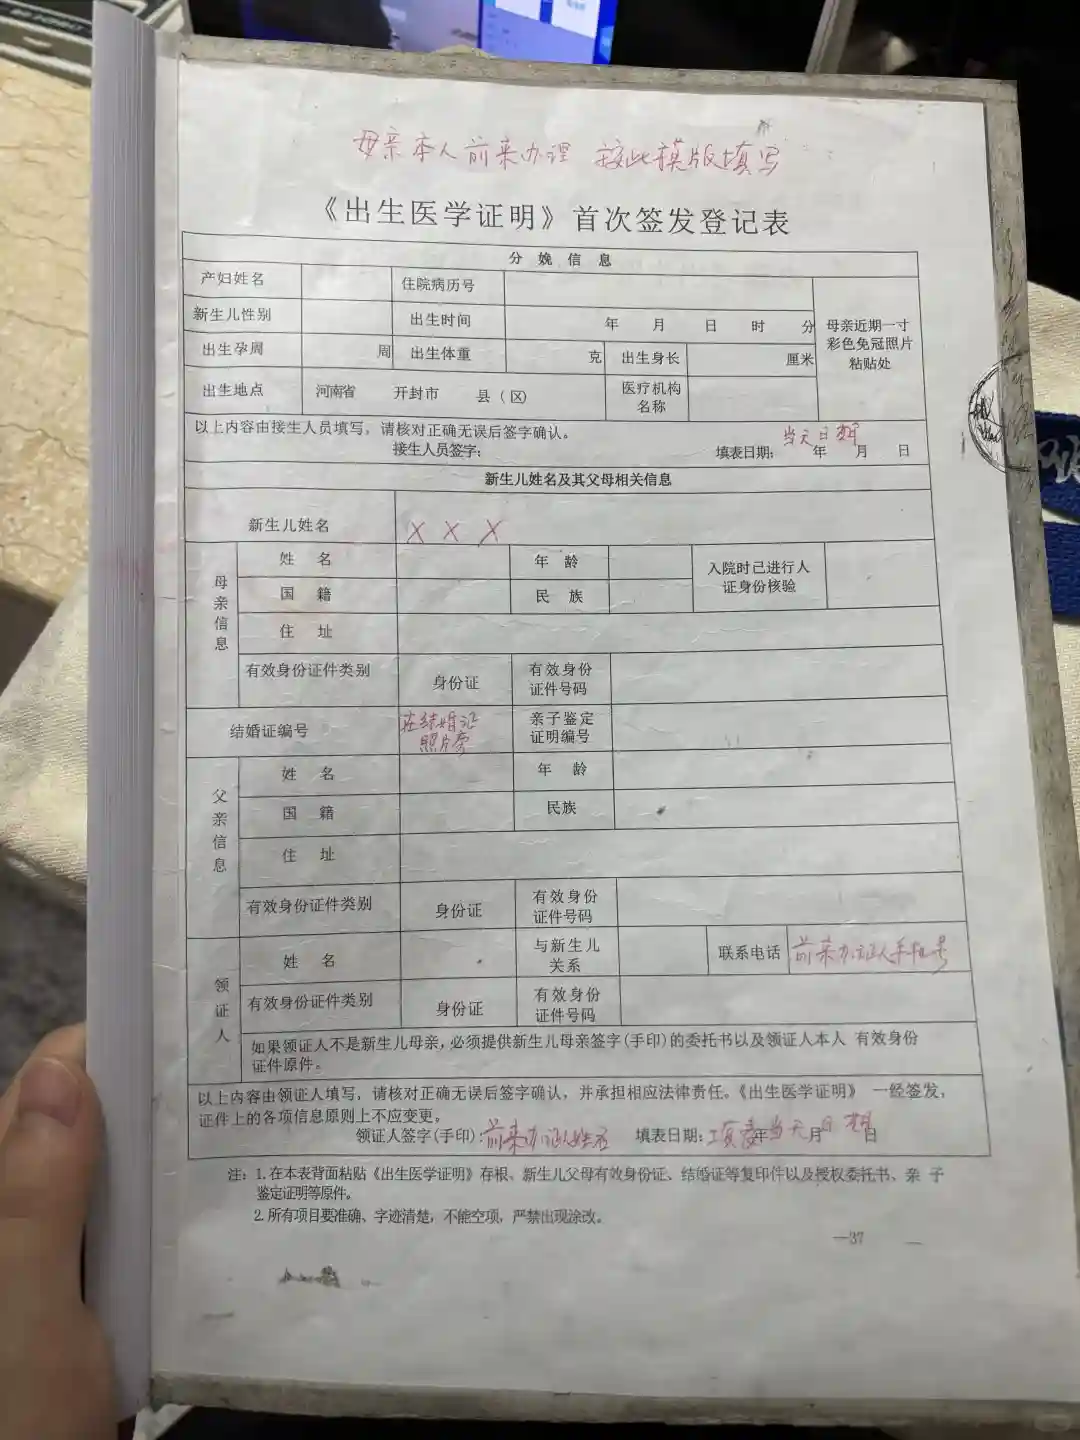 母亲本人前来办理 按此模版填写
《出生医学证明》首次签发登记表
分 娩 信 息
产妇姓名 住院病历号
新生儿性别 出生时间 年 月 日 时 分
母亲近期一寸
彩色免冠照片
粘贴处
出生孕周 周 出生体重 克 出生身长 厘米
出生地点 河南省 开封市 县(区) 医疗机构
名称
以上内容由接生人员填写,请核对正确无误后签字确认。
当天日期
接生人员签字: 填表日期: 年 月 日
新生儿姓名及其父母相关信息
新生儿姓名 X X X
母亲信息
姓 名 年 龄 入院时已进行人
证身份核验
国 籍 民 族
住 址
有效身份证件类别 身份证 有效身份
证件号码
结婚证编号 在结婚证
照片旁
亲子鉴定
证明编号
父亲信息
姓 名 年 龄
国 籍 民族
住 址
有效身份证件类别 身份证 有效身份
证件号码
领证人
姓 名 与新生儿
关系
联系电话 前来办证人手机号
有效身份证件类别 身份证 有效身份
证件号码
如果领证人不是新生儿母亲,必须提供新生儿母亲签字(手印)的委托书以及领证人本人 有效身份
证件原件。
以上内容由领证人填写,请核对正确无误后签字确认,并承担相应法律责任。《出生医学证明》 一经签发,
证件上的各项信息原则上不应变更。
领证人签字(手印):前来办证人姓名 填表日期: 年 月 日 填表当天日期
注: 1.在本表背面粘贴《出生医学证明》存根、新生儿父母有效身份证、结婚证等复印件以及授权委托书、亲 子
鉴定证明等原件。
2.所有项目要准确、字迹清楚,不能空项,严禁出现涂改。
—37 —